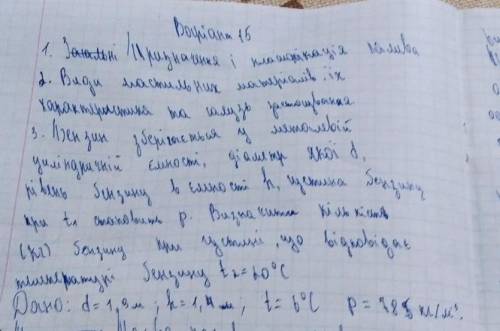 Варіант 15
1. Загальні / Призначення і класифікація палива
2. Види мастильних матеріалів: їх
характеристика та галузь застосування
3. Бензин зберігається у металевій
циліндричній ємності, діаметр якої d,
рівень бензину в ємності h, густина бензину
при t₁ становить ρ. Визначити кількість
(кг) бензину при густині, що відповідає
температурі бензину t₂=20°C
Дано: d=1,9м; h=1,4м; t=6°C ρ=785 кг/м³.